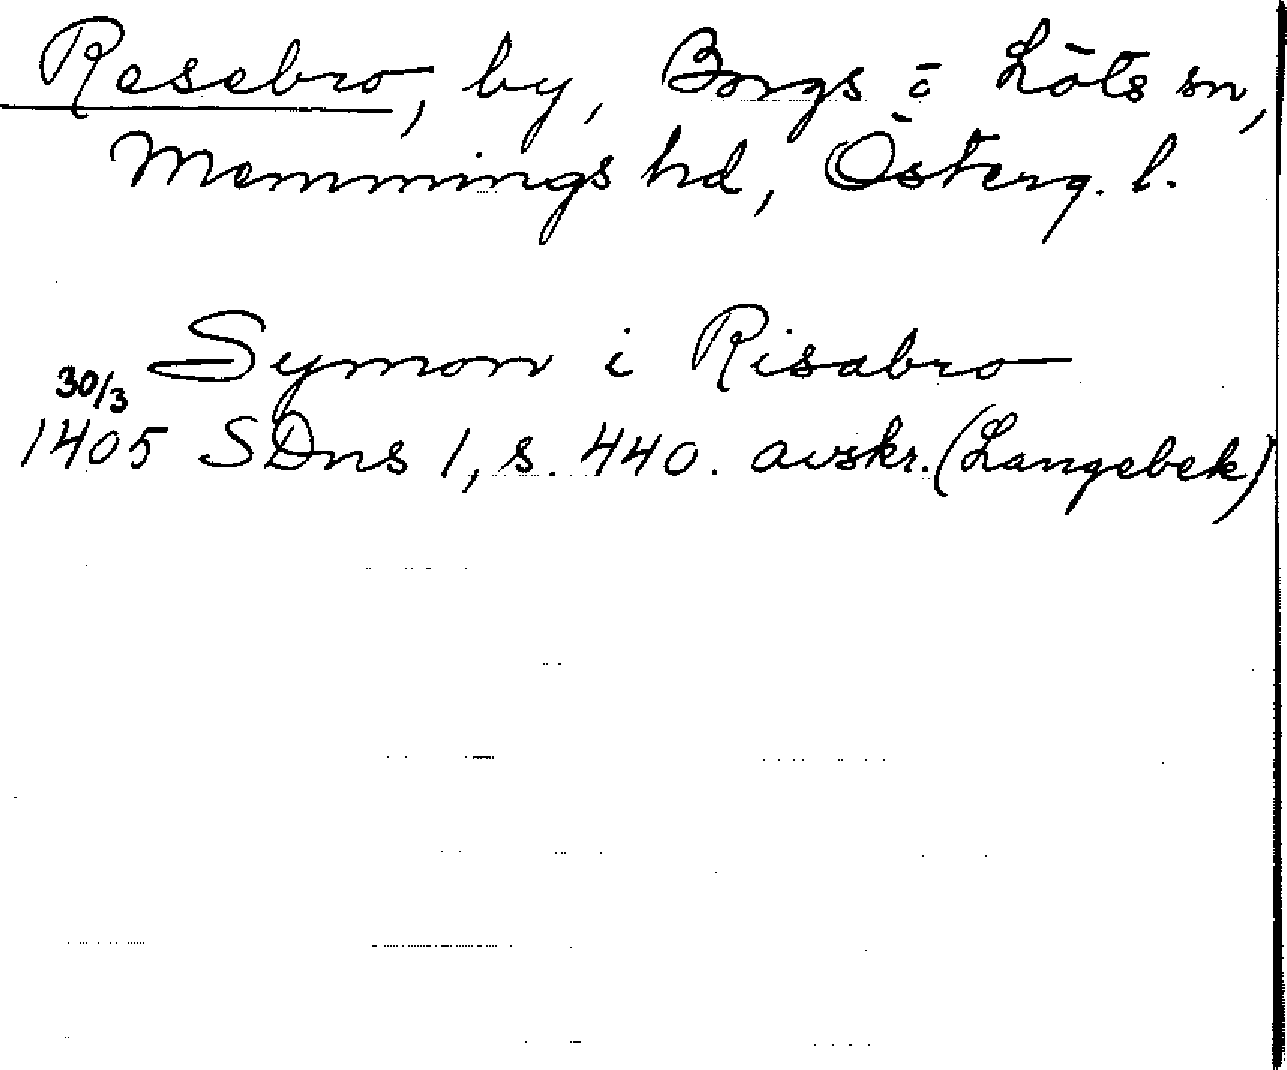 Resebro, by, Borgs o Löts sn,
Memmings hd, Österg. l.
Symon i Risabro
30/3
1405 SDns 1, s. 440. avskr. (Langebek)